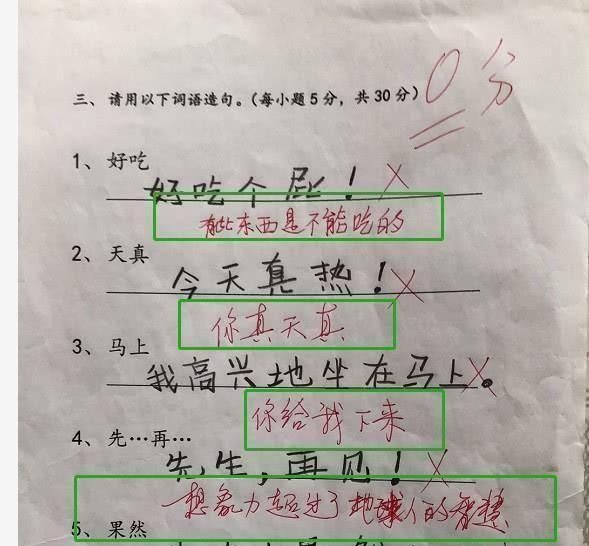 三、请用以下词语造句。(每小题5分，共30分)
0分
1、好吃
好吃个屁！
有些东西是不能吃的
2、天真
今天真热！
你真天真
3、马上
我高兴地坐在马上。
你给我下来
4、先…再…
先生，再见！
想象力超过了地球人的智慧
5、果然